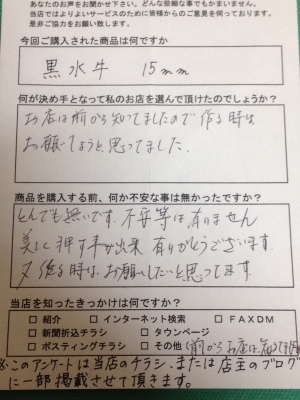 あなたのお声をお聞かせ下さい。どんな些細な事でもかまいません。
当店ではよりよいサービスのために皆様からのご意見を伺っております。
是非ご協力をお願い致します。
今回ご購入された商品は何ですか
黒水牛 15mm
何が決め手となって私のお店を選んで頂けたのでしょうか?
お店は前から知ってましたので作る時は
お願いしようと思ってました.
商品を購入する前、何か不安な事は無かったですか?
とんでも無いです. 不安等は有りません
美しく押す事が出来 有りがとうございます.
又作る時は、お願いしたいと思ってます.
当店を知ったきっかけは何ですか?
□ 紹介 □ インターネット検索 □ FAXDM
□ 新聞折込チラシ □ タウンページ
□ ポスティングチラシ □ その他(前からお店は知ってました
※このアンケートは当店のチラシ、または店主のブログ
に一部掲載させて頂きます。